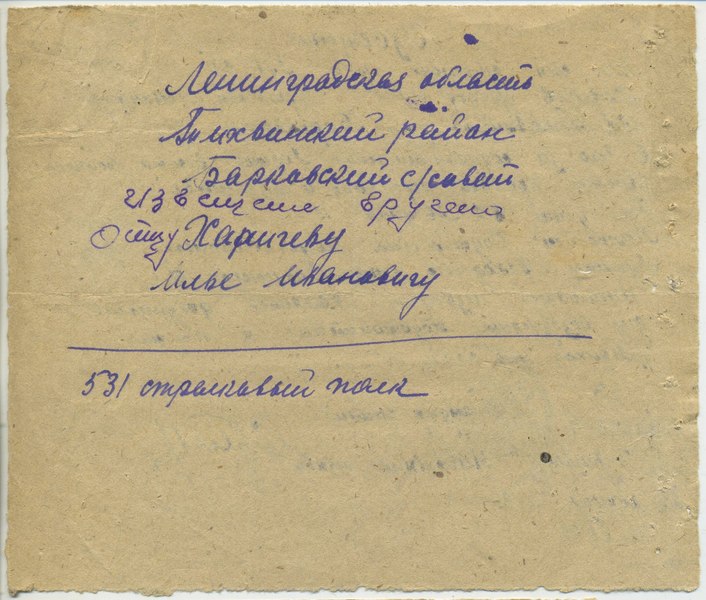 Ленинградская область
Тихвинский район
Барковский с/совет
извещение вручено
отцу Харичеву
Илье Ивановичу
531 стрелковый полк